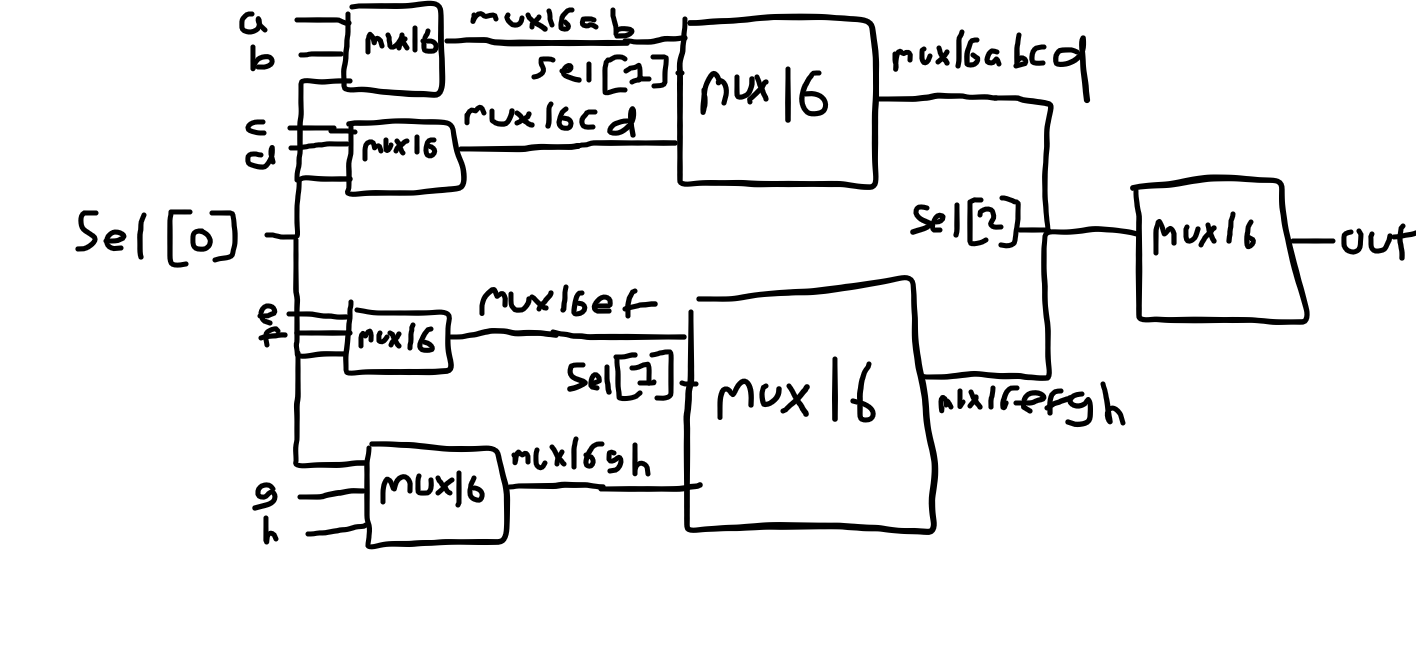 a
b
mux16
mux16ab
sel[1]
mux16
mux16abcd
c
d
mux16
mux16cd
Sel[0]
Sel[2]
mux16
out
e
f
mux16
mux16ef
Sel[1]
mux16
mux16efgh
g
h
mux16
mux16gh